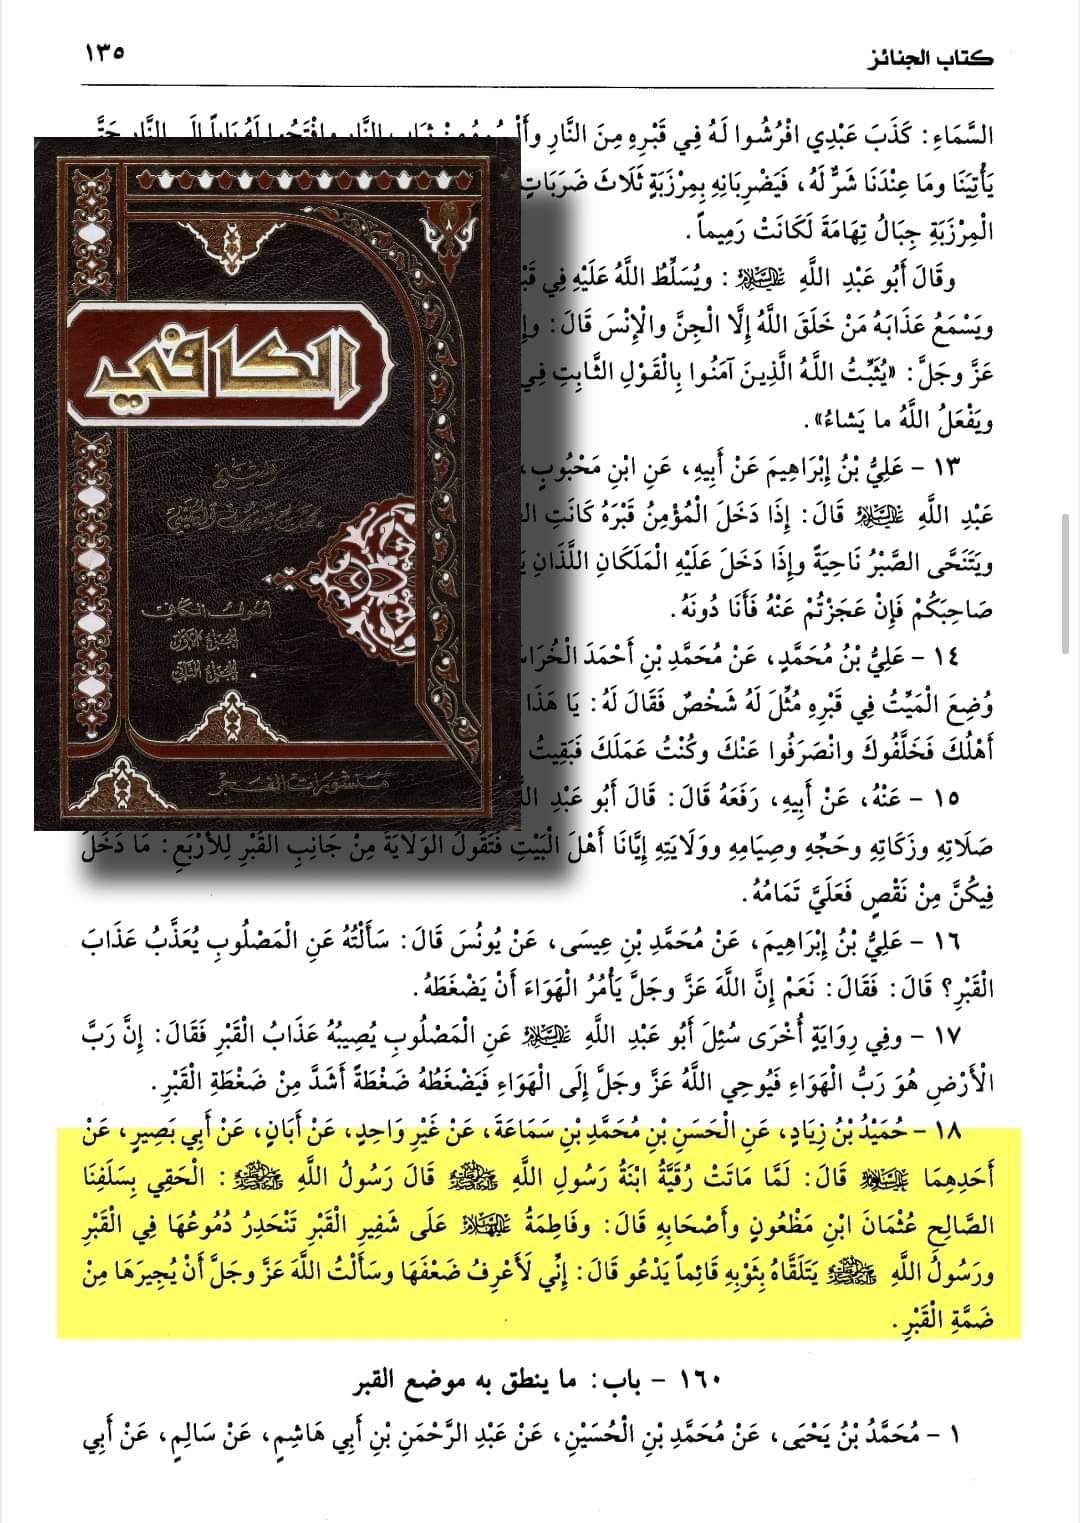 كتاب الجنائز ١٣٥
السَّمَاءِ: كَذَبَ عَبْدِي افْرُشُوا لَهُ فِي قَبْرِهِ مِنَ النَّارِ
يَأْتِيَنَا ومَا عِنْدَنَا شَرٌّ لَهُ، فَيَضْرِبَانِهِ بِمِرْزَبَةٍ ثَلَاثَ ضَرَبَاتٍ
الْمِرْزَبَةِ جِبَالُ تِهَامَةَ لَكَانَتْ رَمِيماً.
وقَالَ أَبُو عَبْدِ اللَّهِ عليه السلام: ويُسَلِّطُ اللَّهُ عَلَيْهِ فِي
ويَسْمَعُ عَذَابَهُ مَنْ خَلَقَ اللَّهُ إِلَّا الْجِنَّ والْإِنْسَ قَالَ:
عَزَّ وجَلَّ: «يُثَبِّتُ اللَّهُ الَّذِينَ آمَنُوا بِالْقَوْلِ الثَّابِتِ فِي
ويَفْعَلُ اللَّهُ ما يَشاءُ».
١٣ - عَلِيُّ بْنُ إِبْرَاهِيمَ عَنْ أَبِيهِ، عَنِ ابْنِ مَحْبُوبٍ،
عَبْدِ اللَّهِ عليه السلام قَالَ: إِذَا دَخَلَ الْمُؤْمِنُ قَبْرَهُ كَانَتِ
ويَتَنَحَّى الصَّبْرُ نَاحِيَةً وإِذَا دَخَلَ عَلَيْهِ الْمَلَكَانِ اللَّذَانِ
صَاحِبَكُمْ فَإِنْ عَجَزْتُمْ عَنْهُ فَأَنَا دُونَهُ.
١٤ - عَلِيُّ بْنُ مُحَمَّدٍ، عَنْ مُحَمَّدِ بْنِ أَحْمَدَ
وُضِعَ الْمَيِّتُ فِي قَبْرِهِ مُثِّلَ لَهُ شَخْصٌ فَقَالَ لَهُ: يَا هَذَا
أَهْلُكَ فَخَلَّفُوكَ وانْصَرَفُوا عَنْكَ وكُنْتُ عَمَلَكَ فَبَقِيتُ
١٥ - عَنْهُ، عَنْ أَبِيهِ، رَفَعَهُ قَالَ: قَالَ أَبُو عَبْدِ
صَلَاتِهِ وزَكَاتِهِ وحَجِّهِ وصِيَامِهِ ووَلَايَتِهِ إِيَّانَا أَهْلَ الْبَيْتِ فَتَقُولُ الْوَلَايَةُ مِنْ جَانِبِ الْقَبْرِ لِلْأَرْبَعِ: مَا دَخَلَ
فِيكُنَّ مِنْ نَقْصٍ فَعَلَيَّ تَمَامُهُ.
١٦ - عَلِيُّ بْنُ إِبْرَاهِيمَ، عَنْ مُحَمَّدِ بْنِ عِيسَى، عَنْ يُونُسَ قَالَ: سَأَلْتُهُ عَنِ الْمَصْلُوبِ يُعَذَّبُ عَذَابَ
الْقَبْرِ؟ قَالَ: فَقَالَ: نَعَمْ إِنَّ اللَّهَ عَزَّ وجَلَّ يَأْمُرُ الْهَوَاءَ أَنْ يَضْغَطَهُ.
١٧ - وفِي رِوَايَةٍ أُخْرَى سُئِلَ أَبُو عَبْدِ اللَّهِ عليه السلام عَنِ الْمَصْلُوبِ يُصِيبُهُ عَذَابُ الْقَبْرِ فَقَالَ: إِنَّ رَبَّ
الْأَرْضِ هُوَ رَبُّ الْهَوَاءِ فَيُوحِي اللَّهُ عَزَّ وجَلَّ إِلَى الْهَوَاءِ فَيَضْغَطُهُ ضَغْطَةً أَشَدَّ مِنْ ضَغْطَةِ الْقَبْرِ.
١٨ - حُمَيْدُ بْنُ زِيَادٍ، عَنِ الْحَسَنِ بْنِ مُحَمَّدِ بْنِ سَمَاعَةَ، عَنْ غَيْرِ وَاحِدٍ، عَنْ أَبَانٍ، عَنْ أَبِي بَصِيرٍ، عَنْ
أَحَدِهِمَا عليه السلام قَالَ: لَمَّا مَاتَتْ رُقَيَّةُ ابْنَةُ رَسُولِ اللَّهِ ﷺ قَالَ رَسُولُ اللَّهِ ﷺ: الْحَقِي بِسَلَفِنَا
الصَّالِحِ عُثْمَانَ ابْنِ مَظْعُونٍ وأَصْحَابِهِ قَالَ: وفَاطِمَةُ عليها السلام عَلَى شَفِيرِ الْقَبْرِ تَنْحَدِرُ دُمُوعُهَا فِي الْقَبْرِ
ورَسُولُ اللَّهِ ﷺ يَتَلَقَّاهُ بِثَوْبِهِ قَائِماً يَدْعُو قَالَ: إِنِّي لَأَعْرِفُ ضَعْفَهَا وسَأَلْتُ اللَّهَ عَزَّ وجَلَّ أَنْ يُجِيرَهَا مِنْ
ضَمَّةِ الْقَبْرِ.
١٦٠ - باب: ما ينطق به موضع القبر
١ - مُحَمَّدُ بْنُ يَحْيَى، عَنْ مُحَمَّدِ بْنِ الْحُسَيْنِ، عَنْ عَبْدِ الرَّحْمَنِ بْنِ أَبِي هَاشِمٍ، عَنْ سَالِمٍ، عَنْ أَبِي
الكافي
أصول الكافي
الجزء الأول
الجزء الثاني
منشورات الفجر